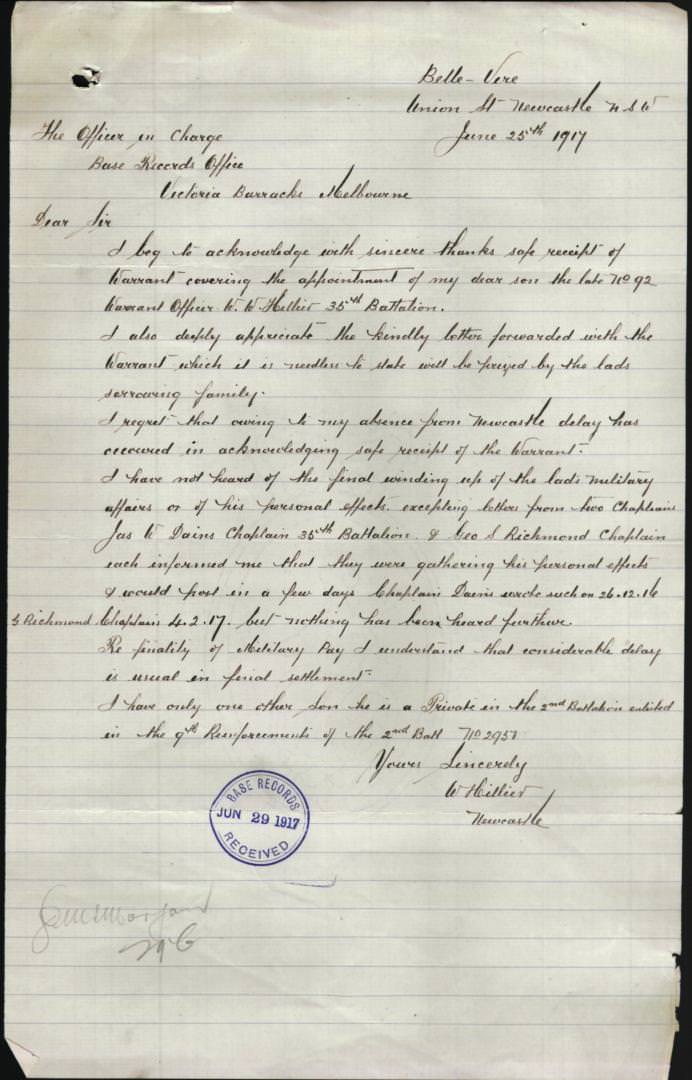 Belle-Vere
Union St Newcastle N S W
June 25th 1917
The Officer in Charge
Base Records Office
Victoria Barracks Melbourne
Dear Sir
I beg to acknowledge with sincere thanks safe receipt of
Warrant covering the appointment of my dear son the late No 92
Warrant Officer W. W Hillier 35th Battalion.
I also deeply appreciate the kindly letter forwarded with the
Warrant which it is needless to state will be prized by the lads
sorrowing family.
I regret that owing to my absence from Newcastle delay has
occured in acknowledging safe receipt of the Warrant.
I have not heard of the final winding up of the lads military
affairs or of his personal effects. excepting letters from two Chaplains
Jas W Dains Chaplain 35th Battalion. & Geo S Richmond Chaplain
each informed me that they were gathering his personal effects
& would post in a few days Chaplain Dains wrote such on 26.12.16
& Richmond Chaplain 4.2.17. but nothing has been heard further.
Re finality of Military Pay I understand that considerable delay
is usual in final settlement.
I have only one other Son he is a Private in the 2nd Battalion enlisted
in the 9th Reinforcements of the 2nd Batt No
Yours Sincerely
W Hillier
Newcastle
BASE RECORDS
JUN 29 1917
RECEIVED